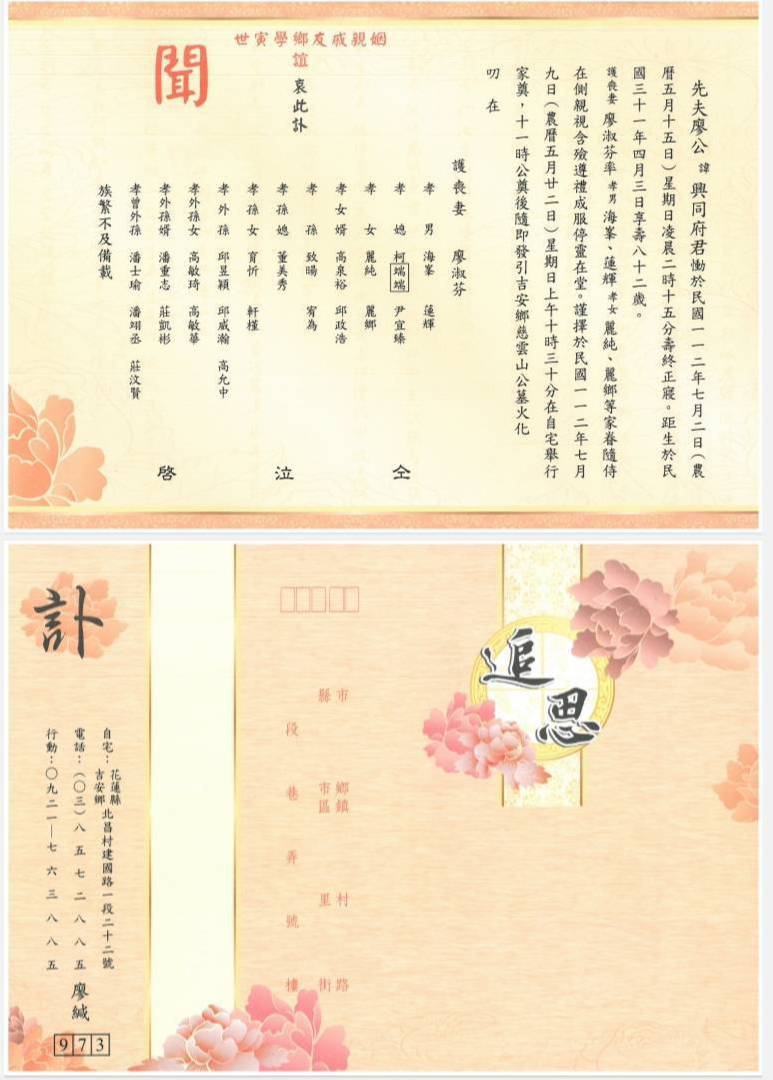 先夫廖公 諱 興同府君慟於民國一一二年七月二日（農
曆五月十五日）星期日凌晨二時十五分壽終正寢。距生於民
國三十一年四月三日享壽八十二歲。
護喪妻 廖淑芬率 孝男 海峯、蓮輝 孝女 麗純、麗鄉等家眷隨侍
在側親視含殮遵禮成服停靈在堂。謹擇於民國一一二年七月
九日（農曆五月廿二日）星期日上午十時三十分在自宅舉行
家奠，十一時公奠後隨即發引吉安鄉慈雲山公墓火化
叨在
姻親戚友鄉學寅世
誼
哀此訃
聞
護喪妻 廖淑芬
孝男 海峯 蓮輝
孝媳 柯端端 尹宜臻
孝女 麗純 麗鄉
孝女婿 高泉裕 邱政浩
孝孫 致暘 宥為
孝孫媳 董美秀
孝孫女 育忻 軒槿
孝外孫 邱昱穎 邱威瀚 高允中
孝外孫女 高敏琦 高敏華
孝外孫婿 潘重志 莊凱彬
孝曾外孫 潘士瑜 潘翊丞 莊汶賢
族繁不及備載
仝 泣 啓
追思
市 鄉鎮 村 路
縣 市區 里 街
段 巷 弄 號 樓
訃
自宅：花蓮縣吉安鄉北昌村建國路一段二十二號
電話：（〇三）八五七二八八五 廖緘
行動：〇九二一—七六三八八五
973